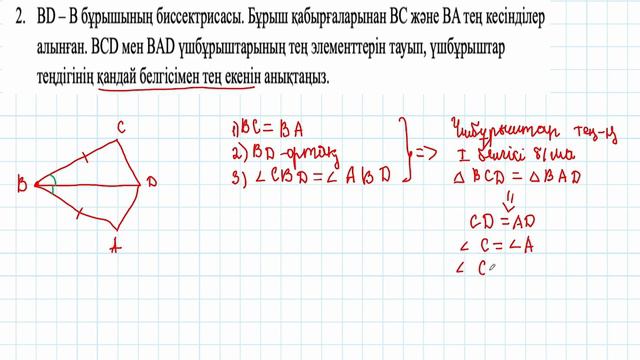 2. BD – B бұрышының биссектрисасы. Бұрыш қабырғаларынан BC және BA тең кесінділер
алынған. BCD мен BAD үшбұрыштарының тең элементтерін тауып, үшбұрыштар
теңдігінің қандай белгісімен тең екенін анықтаңыз.
C
B
D
A
1) BC = BA
2) BD - ортақ
3) ∠ CBD = ∠ ABD
=>
Үшбұрыштар тең-ң
I белгісі б/ша
△ BCD = △ BAD
⇓
CD = AD
∠ C = ∠ A
∠ C